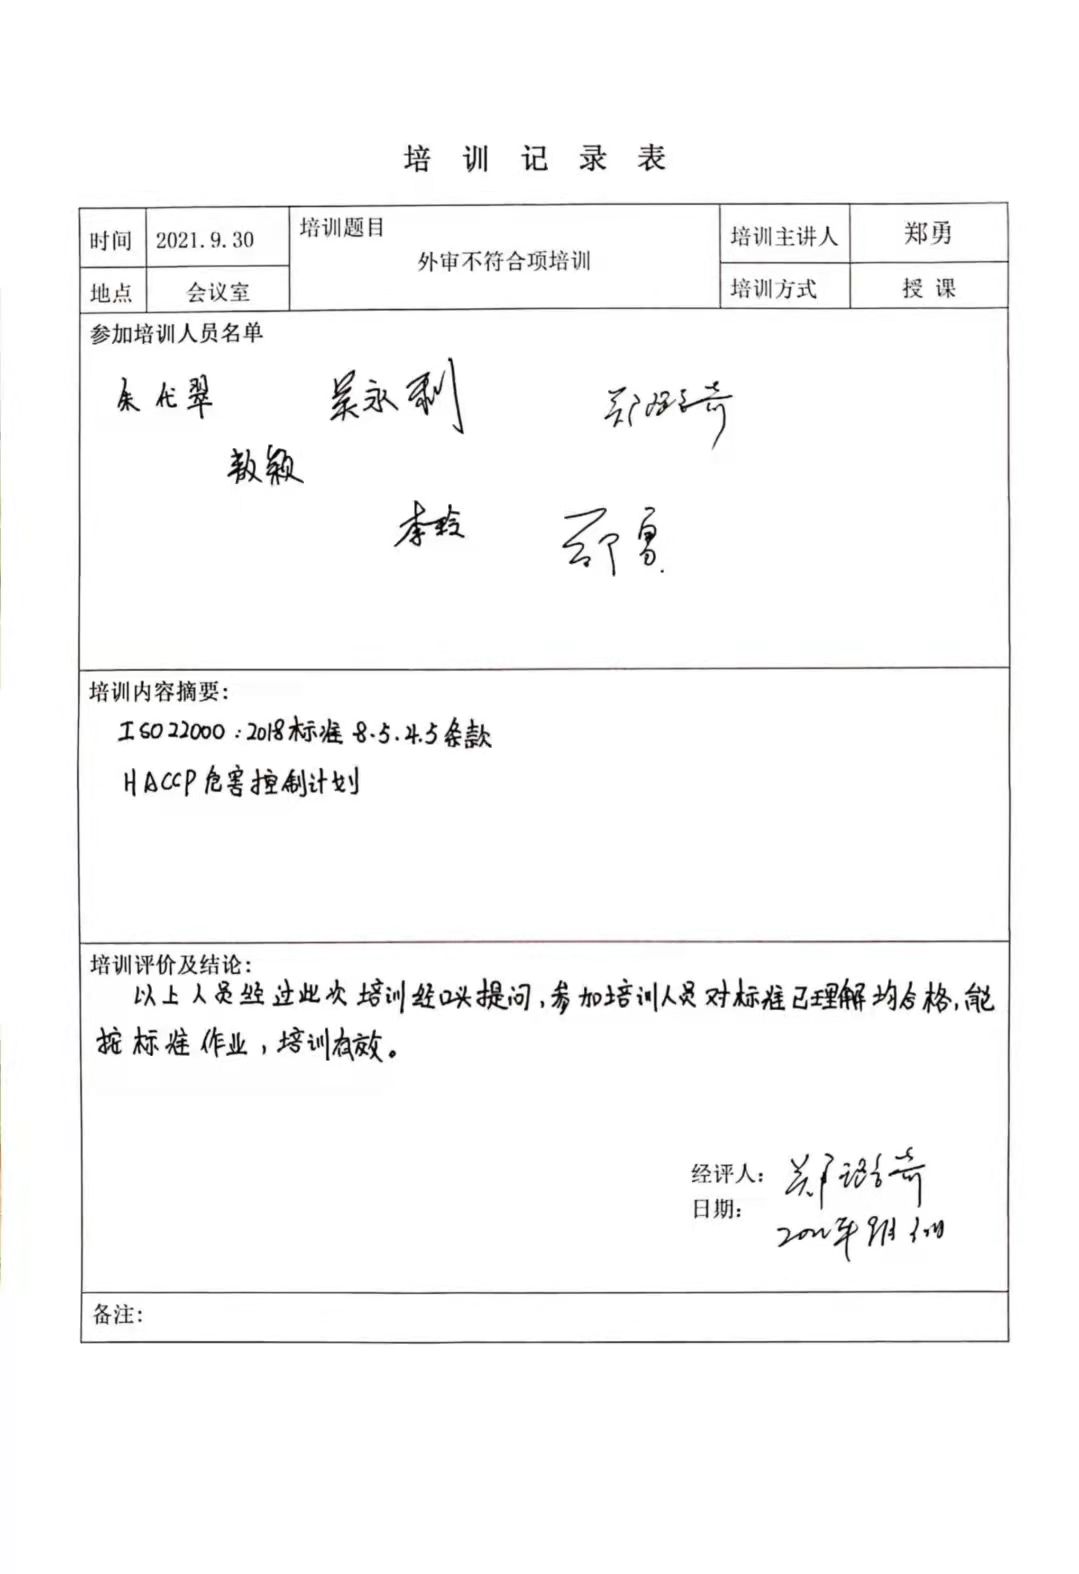 培训记录表
时间 2021.9.30 培训题目 培训主讲人 郑勇
外审不符合项培训
地点 会议室 培训方式 授课
参加培训人员名单
余代翠 吴永利
敖颖
李玲
培训内容摘要：
ISO22000：2018标准 8.5.4.5条款
HACCP危害控制计划
培训评价及结论：
以上人员经过此次培训经口头提问，参加培训人员对标准已理解均合格，能
按标准作业，培训有效。
经评人：
日期：
备注：